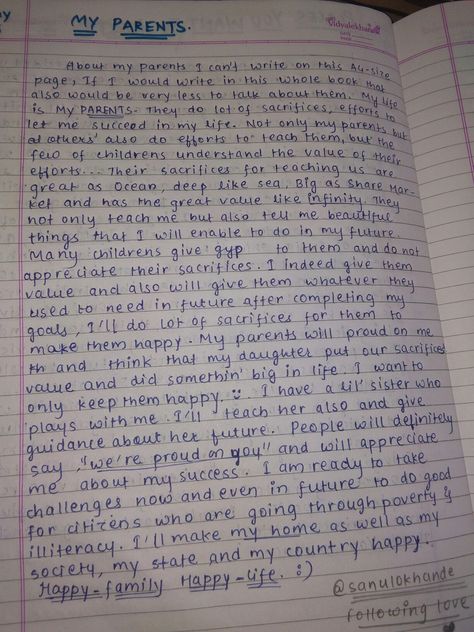 MY PARENTS.
Vidyalokhande
About my parents I can't write on this A4-size
page, If I would write in this whole book that
also would be very less to talk about them. My life
is My PARENTS. They do lot of sacrifices, efforts to
let me succeed in my life. Not only my parents but
others' also do efforts to teach them, but the
few of childrens understand the value of their
efforts... Their sacrifices for teaching us are
great as Ocean, deep like sea, Big as Share Mar-
ket and has the great value like infinity. They
not only teach me but also tell me beautiful
things that I will enable to do in my future.
Many childrens give gyp to them and do not
appreciate their sacrifices. I indeed give them
value and also will give them whatever they
used to need in future after completing my
goals, I'll do lot of sacrifices for them to
make them happy. My parents will proud on me
th and think that my daughter put our sacrifices
value and did somethin' big in life. I want to
only keep them happy. I have a lil' sister who
plays with me. I'll teach her also and give
guidance about her future. People will definitely
say "we're proud on you" and will appreciate
me about my success. I am ready to take
challenges now and even in future to do good
for citizens who are going through poverty &
illiteracy. I'll make my home as well as my
society, my state and my country happy.
Happy-family Happy-life. :)
@sanulokhande
following love